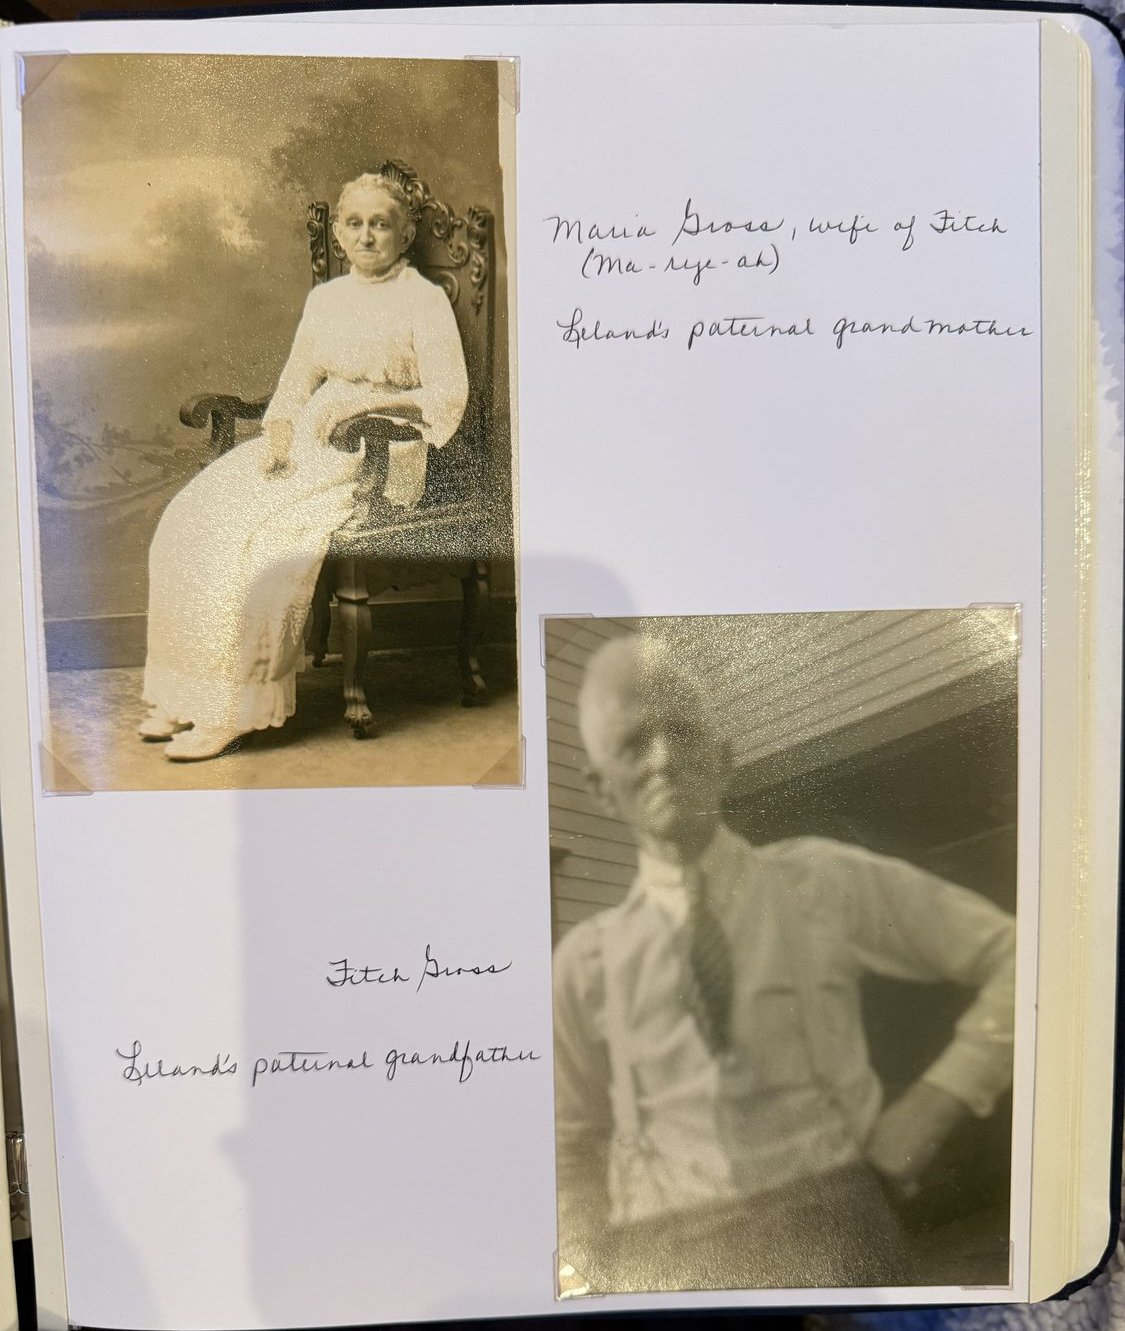 Maria Gross, wife of Fitch
(Ma-rye-ah)
Leland's paternal grandmother
Fitch Gross
Leland's paternal grandfather